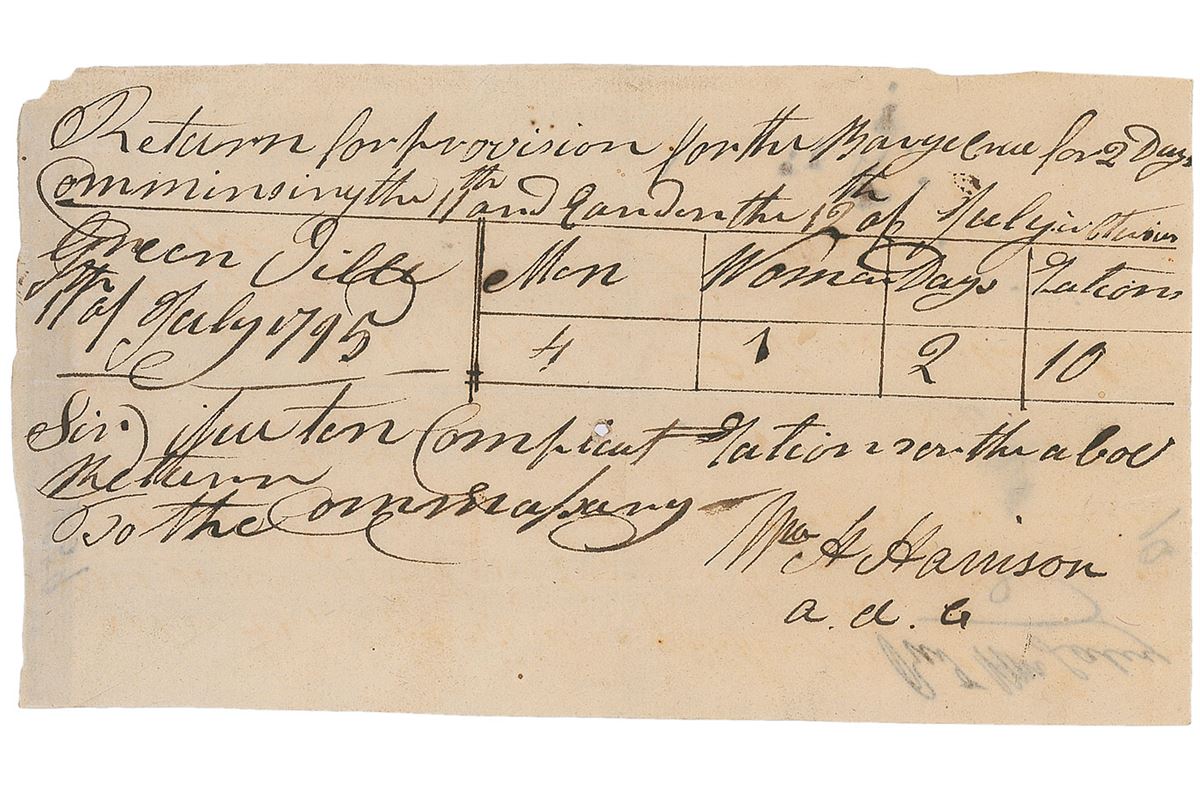 Return for provision for the Barge Crue for 2 Days
Comminsing the 11th and Eanden the 12th of July
Green Vill
11th of July 1795
Men Woman Days Rations
4 1 2 10
Sir) Isue ten Compleat Rations on the aboe
Retturn
To the Commasary
Wm H Harrison
a. d. C